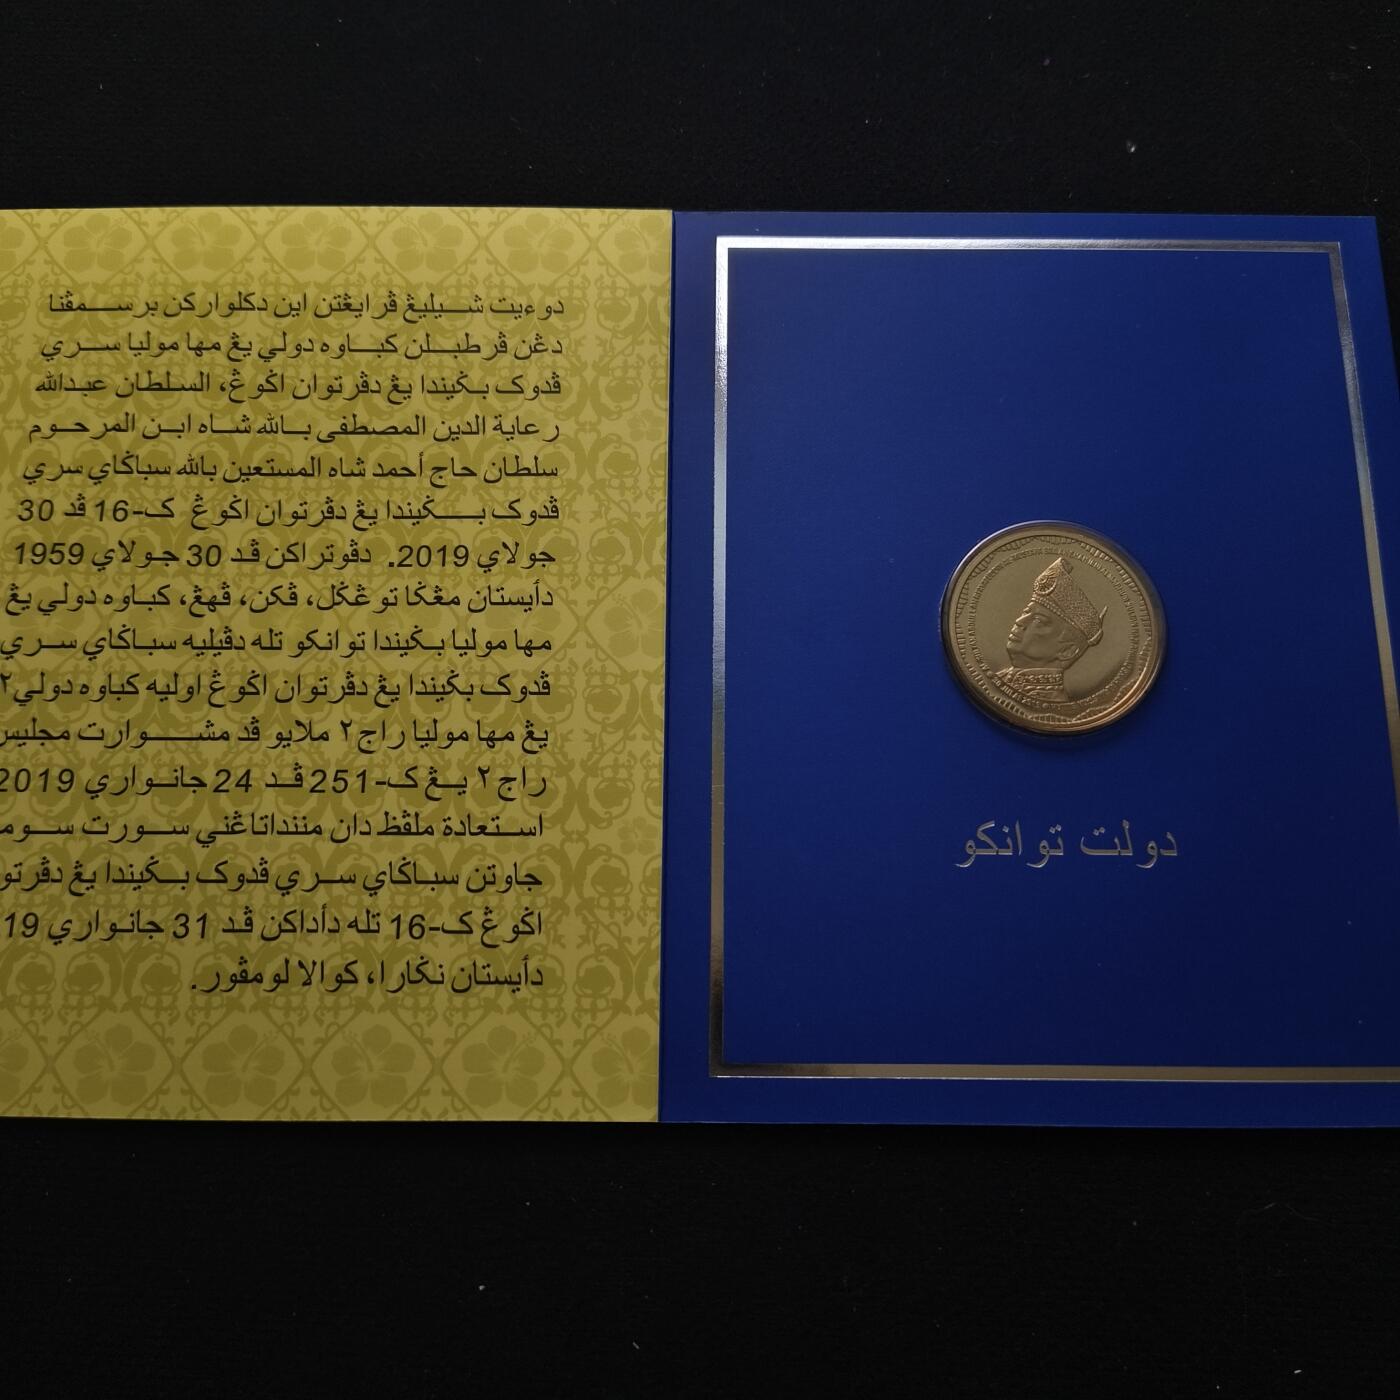 دوءيت شيليڠ ڤرايڠتن اين دکلوارکن برسمڤنا
دڠن ڤرطبلن کباوه دولي يڠ مها موليا سري
ڤدوک بݢيندا يڠ دڤرتوان اݢوڠ، السلطان عبدالله
رعاية الدين المصطفى بالله شاه ابن المرحوم
سلطان حاج أحمد شاه المستعين بالله سباݢاي سري
ڤدوک بݢيندا يڠ دڤرتوان اݢوڠ ک-16 ڤد 30
جولاي 2019. دڤوتراکن ڤد 30 جولاي 1959
دأيستان مڠݢا توڠݢل، ڤکن، ڤهڠ، کباوه دولي يڠ
مها موليا بݢيندا توانکو تله دڤيليه سباݢاي سري
ڤدوک بݢيندا يڠ دڤرتوان اݢوڠ اوليه کباوه دولي٢
يڠ مها موليا راج٢ ملايو ڤد مشوارت مجليس
راج٢ يڠ ک-251 ڤد 24 جانواري 2019
استعادة ملڤظ دان منندا‌تاڠني سورت سوم
جاوتن سباݢاي سري ڤدوک بݢيندا يڠ دڤرتو
اݢوڠ ک-16 تله دأداکن ڤد 31 جانواري 19
دأيستان نݢارا، کوالا لومڤور.
دولت توانکو